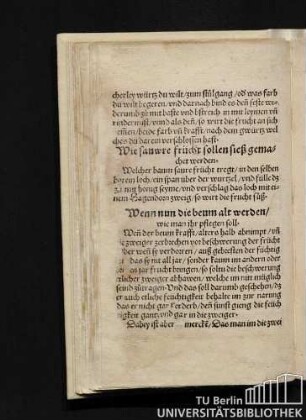 cherley würtz du wilt/ zum stülgang/ od' was farb
du wilt begeren. vnd darnach bind es den selste wi-
derumb zu mit baste vnd bstreich in mit leymen vn
mist/ vnnd als den, so wirt die frücht an sich
nemen/ beide farb vn krafft/ nach dem gwürtz wel-
ches du darein verschlossen hast.
Wie saure frücht sollen sieß gema-
chet werden.
Welcher baum saure frücht tregt/ in den selben
borem loch/ ein span über der wurtzel/ vnd fülle dz
mit honig seyme/ vnd verschlag das loch mit ei-
nem Hagendorn zweig, so wirt die frücht süß.
Wenn nun die beum alt werden/
wie man ihr pflegen soll.
Wen der beum krafft/ alters halb abnimpt/ vn
die zweiger zerbrechen vor beschwerung der frücht
oder wen sie verdorren/ auß gebrechen der füchtig
das sie nit all jar/ sonder kaum im andern oder
jar frücht bringen/ so soltu die beschwerung
etlicher zweiger abhawen/ welche im nun müglich
seind zu tragen. Vnd das soll darumb geschehen/ dz
er auch etliche feuchtigkeit behalte im zur narung
das er nicht gar verderb/ den sunst gieng die feuch
tigkeit gantz vnd gar in die zweiger.
Dabey ist aber zu mercken/ Das man im die zwei
TU Berlin
UNIVERSITÄTSBIBLIOTHEK